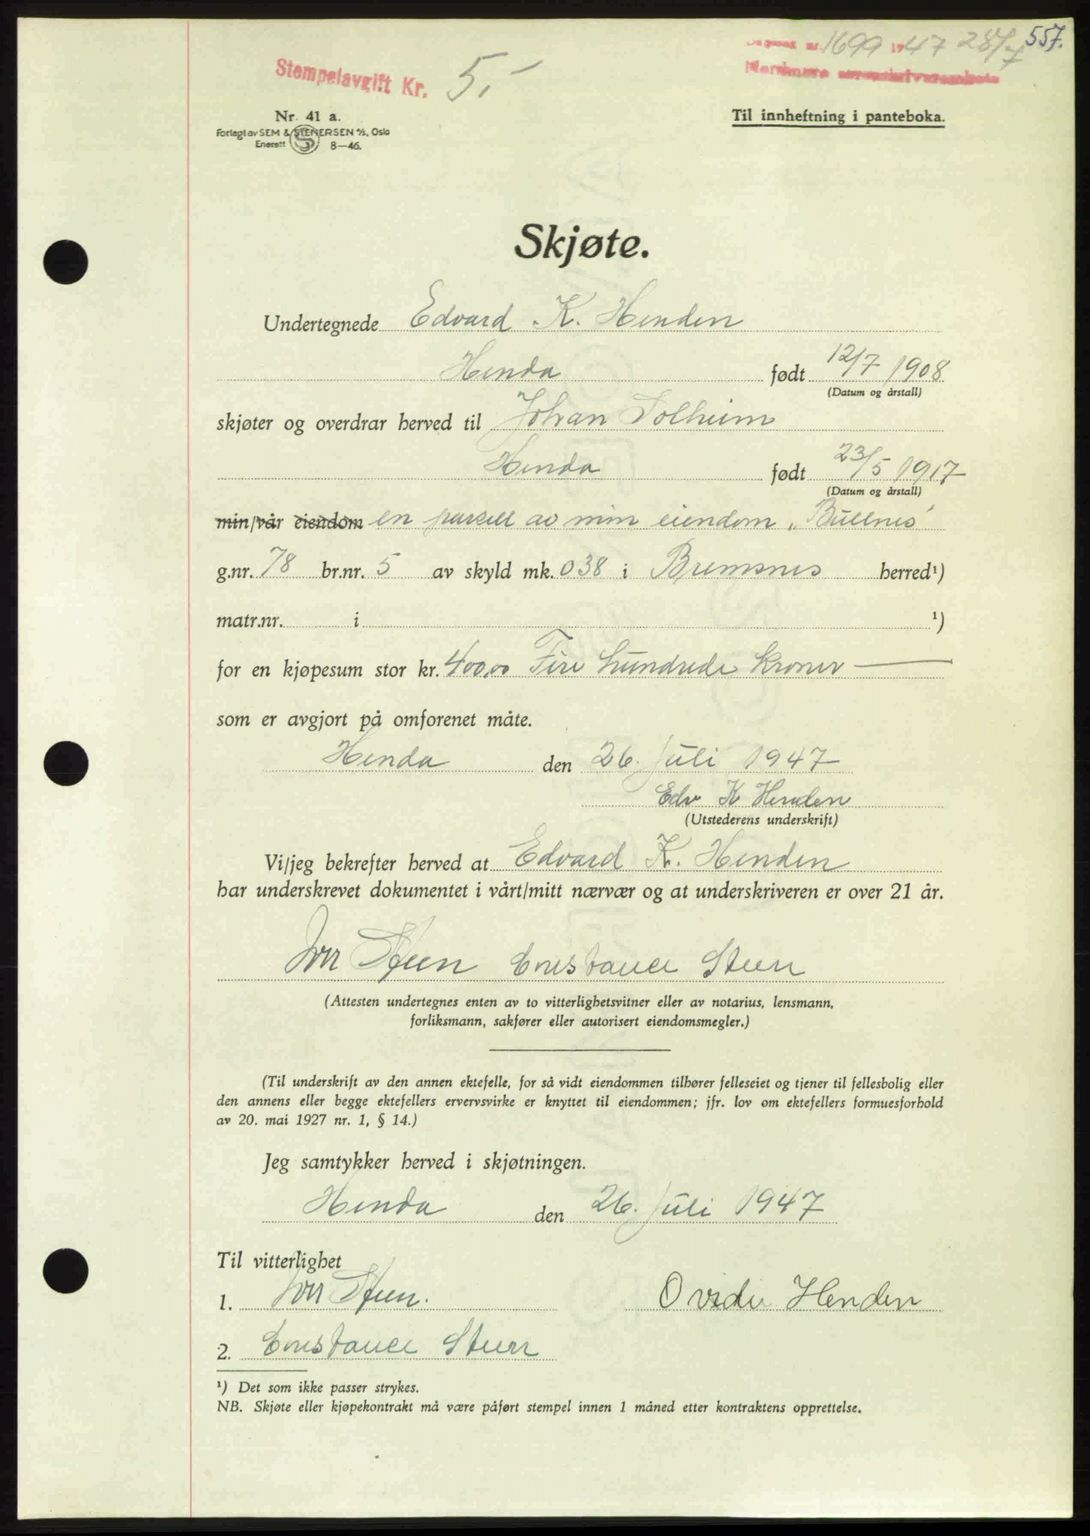 557.
1699 1947 28/7
Stempelavgift Kr. 5.-
Nr. 41 a.
Til innheftning i panteboka.
Forlagt av SEM & STENERSEN A/S, Oslo
Enerett 8—46.
Skjøte.
Undertegnede Edvard K. Henden
Henda født 12/7 1908
(Datum og årstall)
skjøter og overdrar herved til Johan Solheim
Henda født 23/5 1917
(Datum og årstall)
min/vår eiendom en parsell av min eiendom „Bullnes"
g.nr. 78 br.nr. 5 av skyld mk. 038 i Bremsnes herred¹)
matr.nr. i ¹)
for en kjøpesum stor kr. 400,00 Fire hundrede kroner
som er avgjort på omforenet måte.
Henda den 26. juli 1947
Edv K Henden
(Utstederens underskrift)
Vi/jeg bekrefter herved at Edvard K. Henden
har underskrevet dokumentet i vårt/mitt nærvær og at underskriveren er over 21 år.
Iver Steen Constance Steen
(Attesten undertegnes enten av to vitterlighetsvitner eller av notarius, lensmann,
forliksmann, sakfører eller autorisert eiendomsmegler.)
(Til underskrift av den annen ektefelle, for så vidt eiendommen tilhører felleseiet og tjener til fellesbolig eller
den annens eller begge ektefellers ervervsvirke er knyttet til eiendommen; jfr. lov om ektefellers formuesforhold
av 20. mai 1927 nr. 1, § 14.)
Jeg samtykker herved i skjøtningen.
Henda den 26. juli 1947
Til vitterlighet
1. Iver Steen. Henden
2. Constance Steen
¹) Det som ikke passer strykes.
NB. Skjøte eller kjøpekontrakt må være påført stempel innen 1 måned etter kontraktens opprettelse.